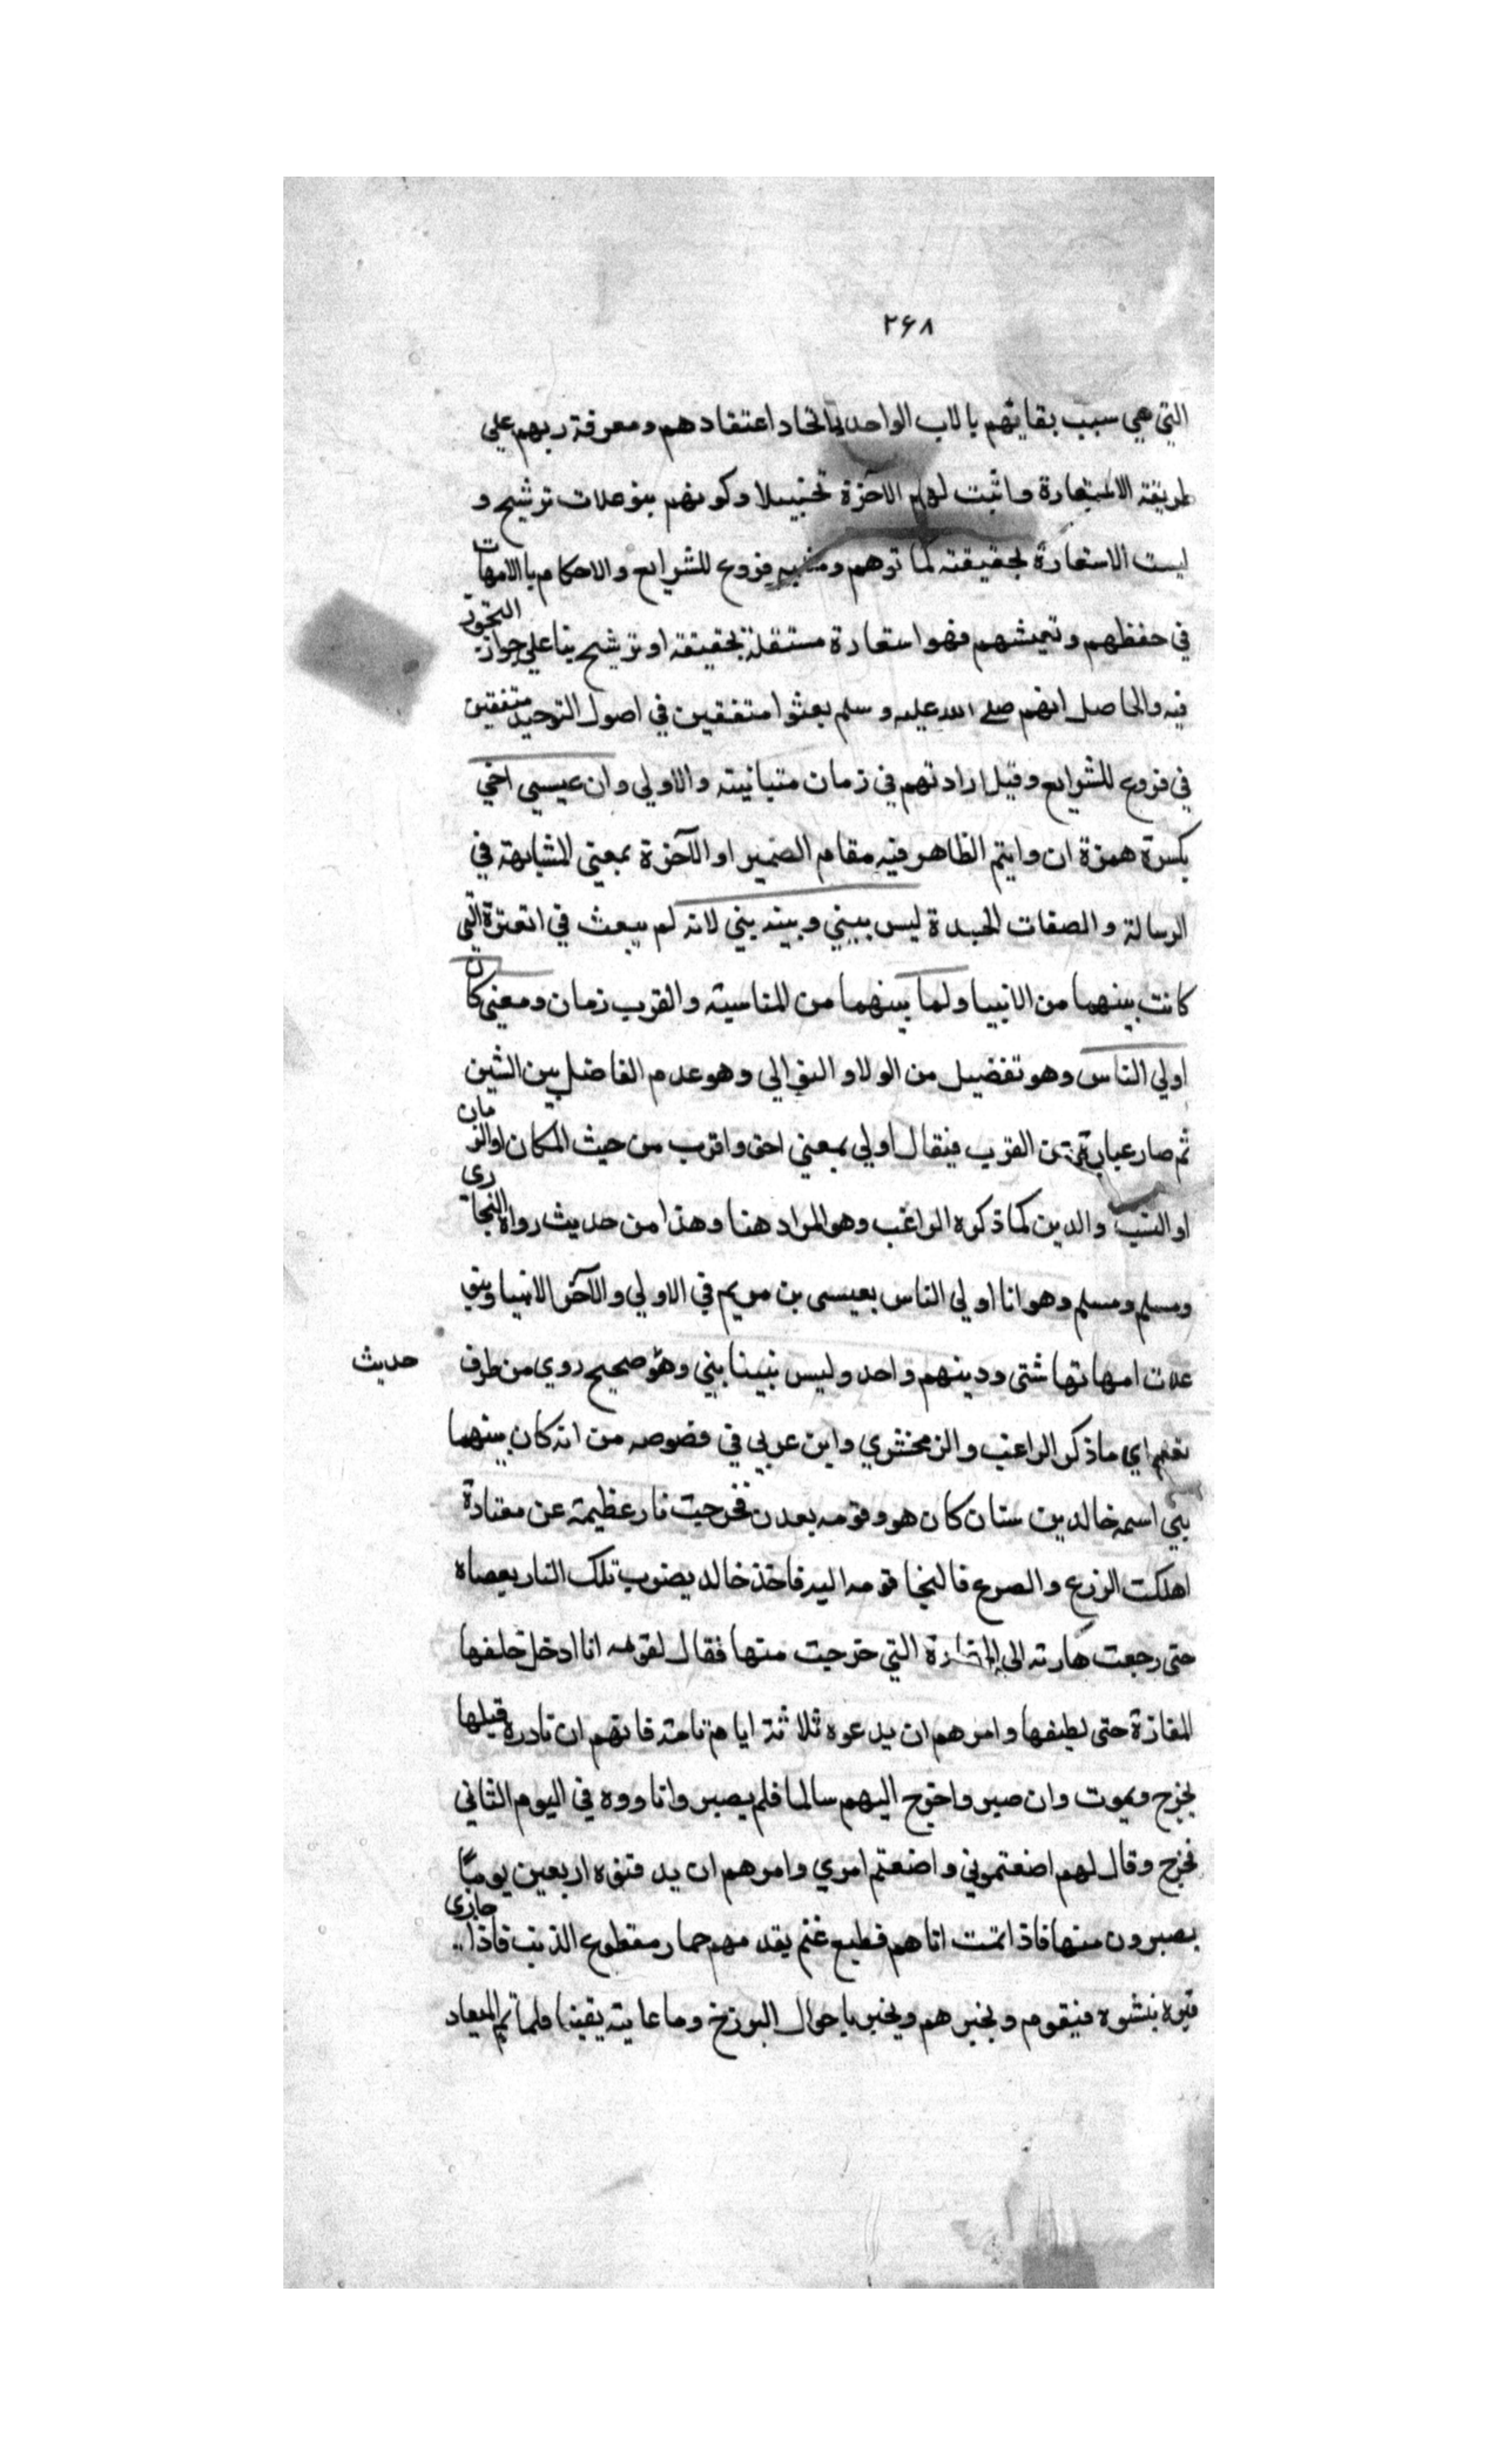 ۲۶۸
التي هي سبب بقايهم بالاب الواحد لاتحاد اعتقادهم ومعرفة ربهم علي
طريقة الاستعارة واثبت لهم الاخرة تخييلا وكونهم بنوعلات ترشيح و
ليست الاستعارة بحقيقته لما توهم ومشبه فروع الشرايع والاحكام بالامهات
في حفظهم وتعيشهم فهو استعارة مستقلة بحقيقته او ترشيح بنا علي جواز التجوز
فيه والحاصل انهم صلى الله عليه وسلم بعثوا متفقين في اصول التوحيد متفقين
في فروع الشرايع وقيل ارادتهم في زمان متباينته والاولي وان عيسي اخي
بكسرة همزة ان وايتم الظاهر فيه مقام الضمير او الآخرة بمعني المشابهة في
الرسالة والصفات الحميدة ليس بيني وبينه بني لانه لم يبعث في التي
كانت بينهما من الانبيا ولما بينهما من المناسبته والقرب زمان ومعني كان
اولي الناس وهو تفضيل من الولا والتوالي وهو عدم الفاضل بين الشين
ثم صار عبارة عن القرب فيقال اولي بمعني احق واقرب من حيث المكان اوالزمان
او النسب والدين كما ذكره الراغب وهو المراد هنا وهذا من حديث رواه النجاري
ومسلم ومسلم وهو انا اولي الناس بعيسى بن مريم في الاولي والآخرة الانبيا وبنو
علات امهاتها شتى ودينهم واحد وليس بيننا بني وهو صحيح روي من طرف
حديث
نعم اي ماذكر الراغب والزمخشري وابن عربي في فصوصه من انه كان بينهما
بني اسمه خالد بن سنان كان هو وقومه بعدن فخرجت نار عظيمة عن مغارة
اهلكت الزرع والضرع فالنجا قومه اليه فاخذ خالد يضرب تلك النار بعصاه
حتى رجعت هارته الى المغارة التي خرجت منها فقال لقومه انا ادخل خلفها
المغازة حتى لطيفها وامرهم ان يدعوه ثلاثة ايام تامة فانهم ان نادوه قبلها
يخرج ويموت وان صبروا خرج اليهم سالما فلم يصبروا ناووه في اليوم الثاني
فخرج وقال لهم اضعتموني واضعتم امري وامرهم ان يدفنوه اربعين يومًا
يصبرون منها فاذا تمت اتاهم قطيع غنم يقدمهم حمار مقطوع الذنب فاذا حازي
قبره ينشوه فيقوم ويخبرهم ويخبر باحوال البرزخ وما عاينه يقينا فلما تم الميعاد